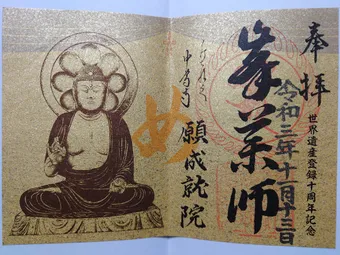 奉拝
世界遺産登録十周年記念
令和三年十一月十三日
峯薬師
願成就院
みちのく
中尊寺
妙